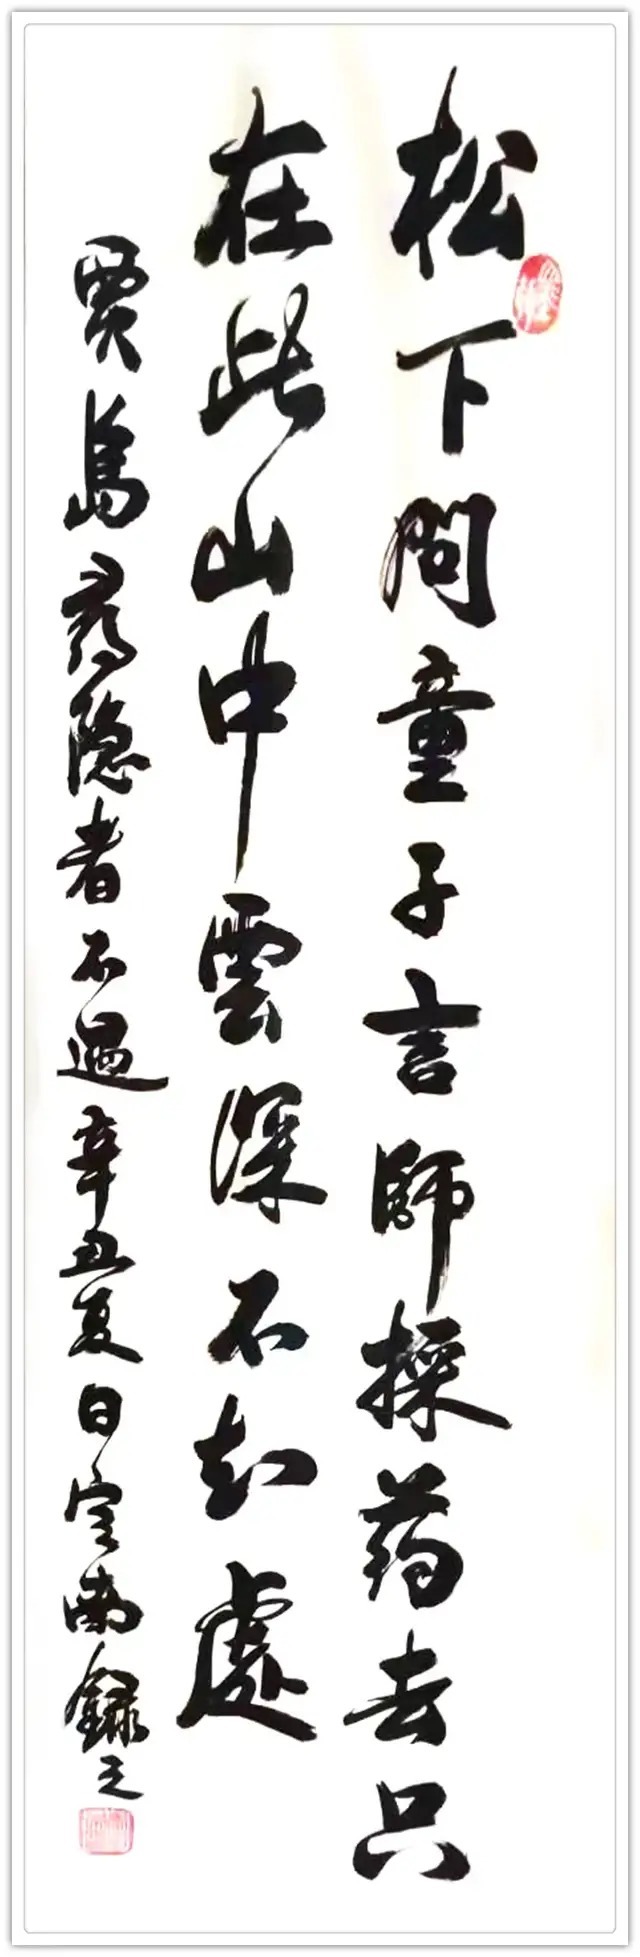 松下问童子言師採药去只
在此山中雲深不知處
贾島尋隐者不遇辛丑夏日定南録之